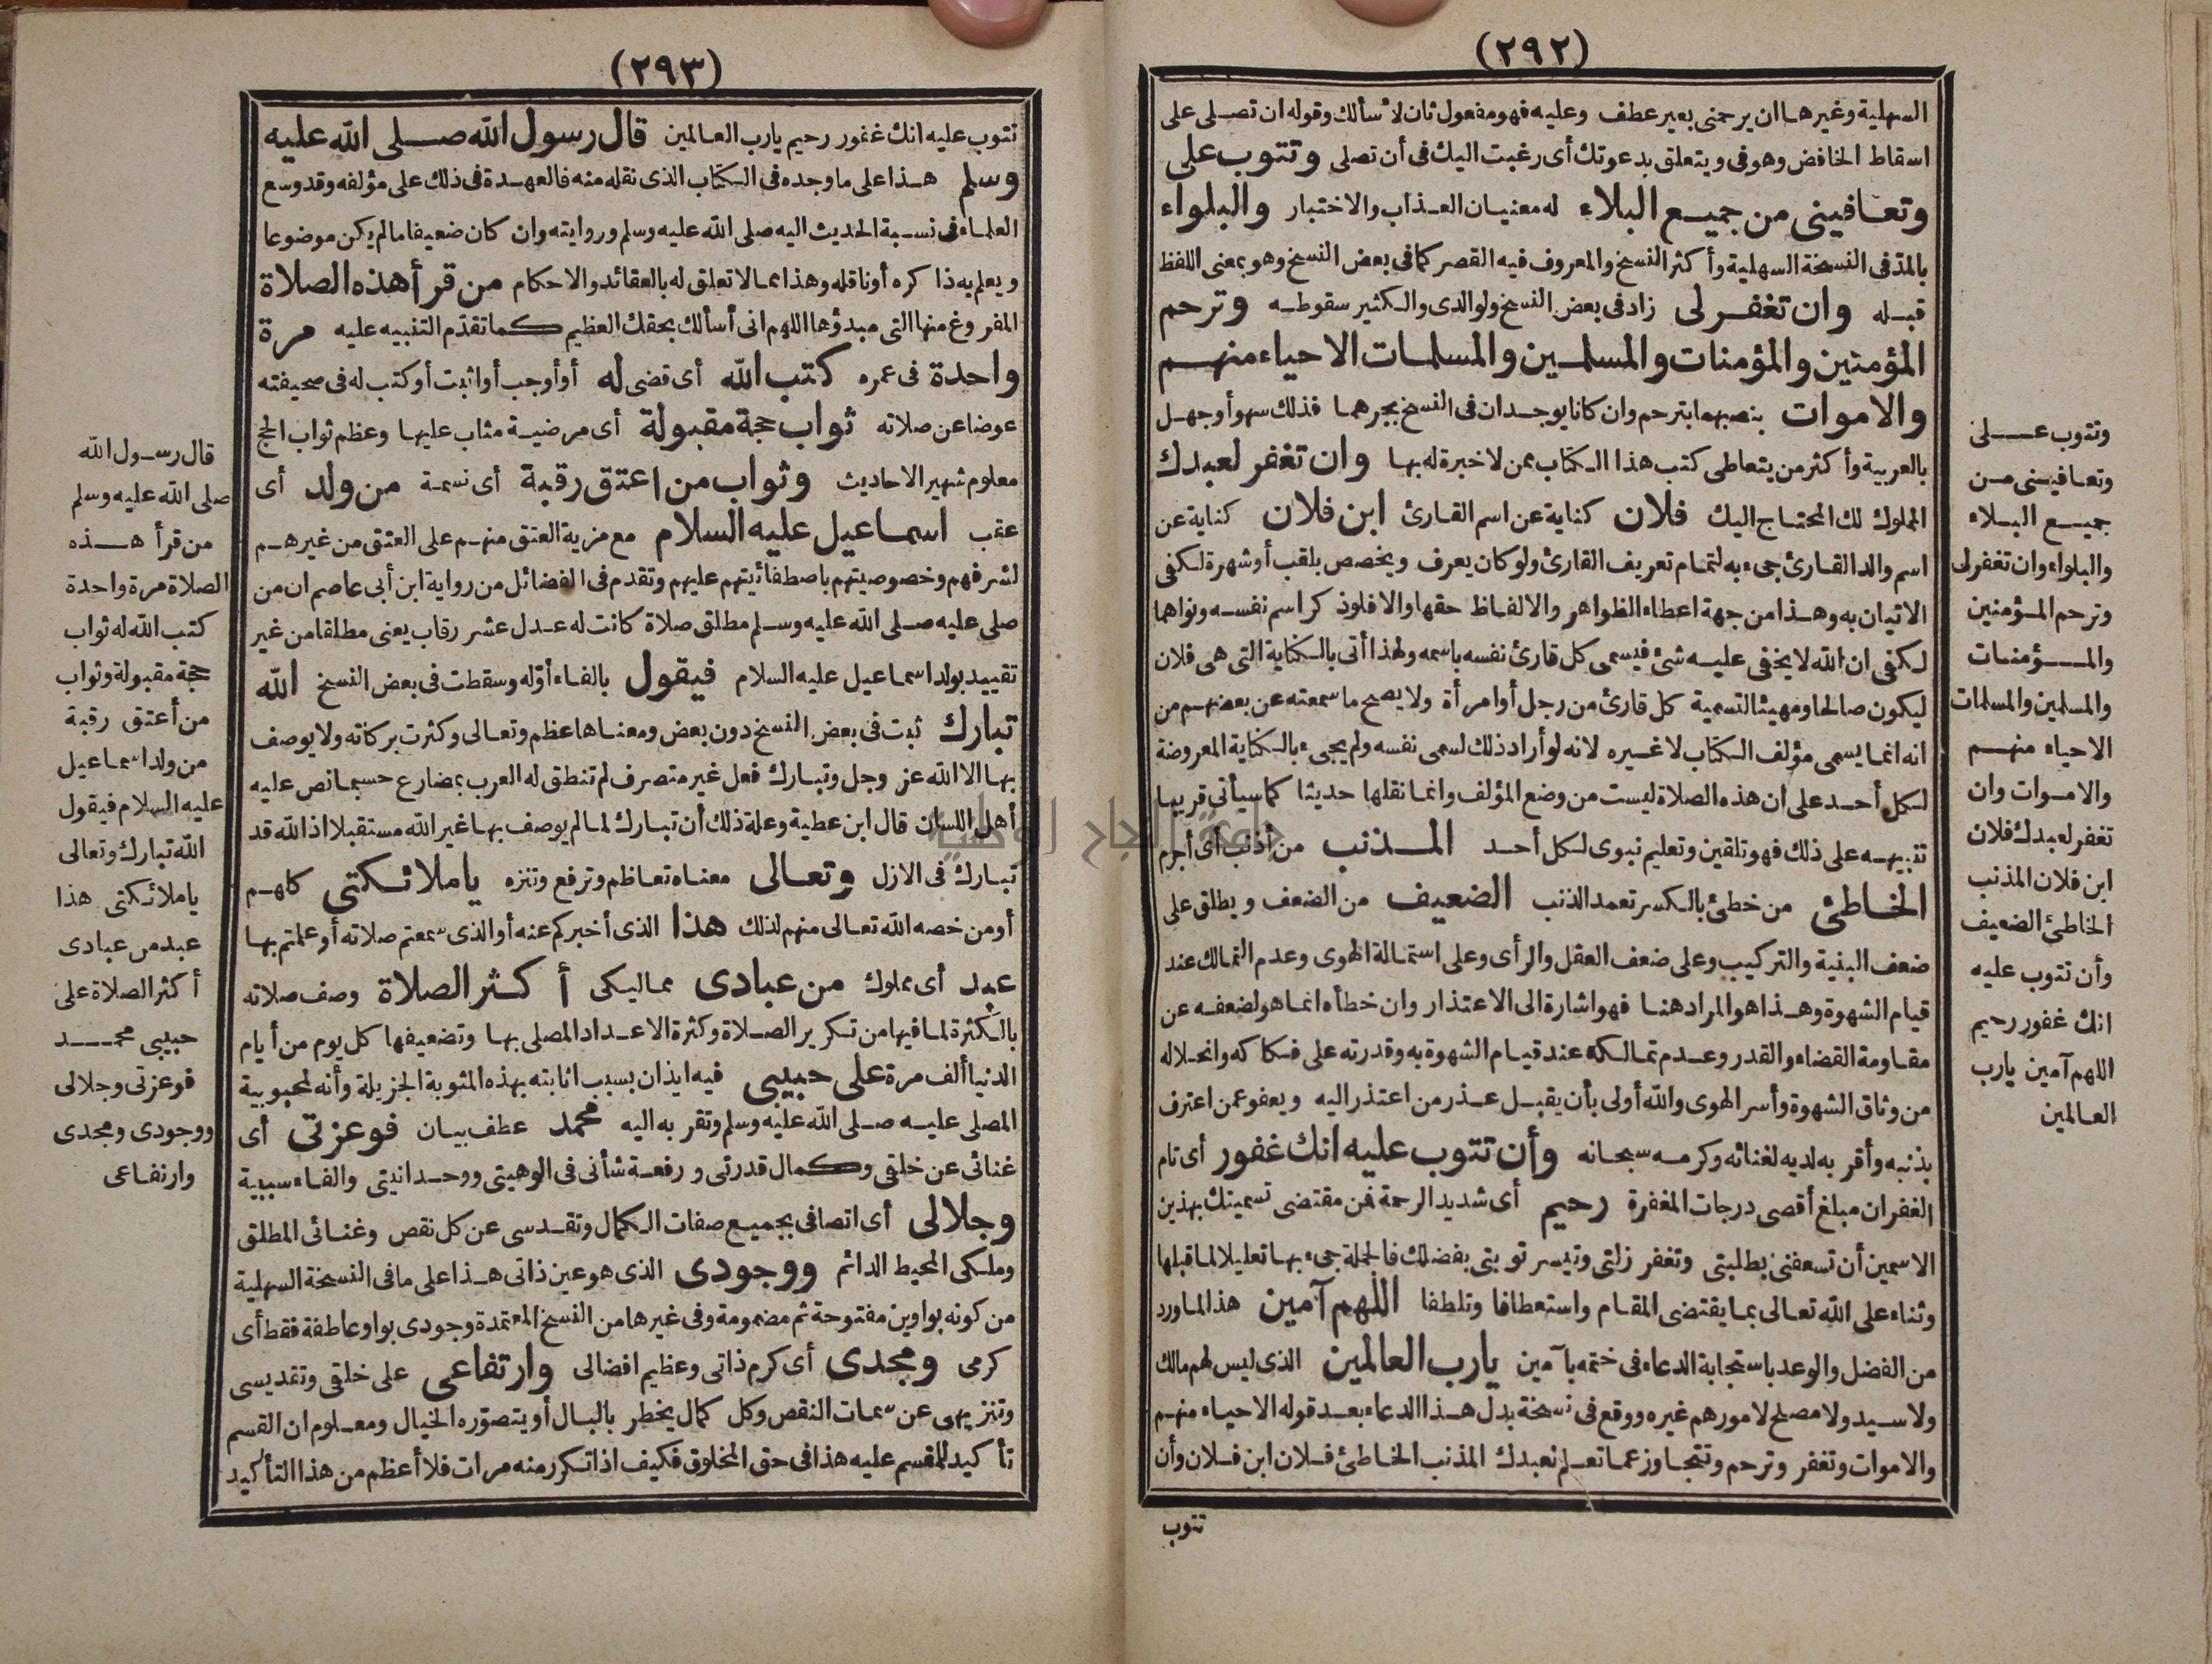 (٢٩٢)
السهلية وغيرها ان يرحمنى بغير عطف وعليه فهو مفعول ثان لاسألك وقوله ان تصلى على
اسقاط الخافض وهو فى ويتعلق بدعوتك أى رغبت اليك فى أن تصلى وتتوب على
وتعافينى من جميع البلاء له معنيان العذاب والاختبار والبلواء
بالمد فى النسخة السهلية وأكثر النسخ والمعروف فيه القصر كما فى بعض النسخ وهو بمعنى اللفظ
قبله وان تغفر لى زاد فى بعض النسخ ولوالدى والكثير سقوطه وترحم
المؤمنين والمؤمنات والمسلمين والمسلمات الاحياء منهم
والاموات بنصبهما بترحم وان كانا يوجدان فى النسخ بجرهما فذلك سهو أو جهل
بالعربية وأكثر من يتعاطى كتب هذا الكتاب ممن لا خبرة له بها وان تغفر لعبدك
المملوك لك المحتاج اليك فلان كناية عن اسم القارئ ابن فلان كناية عن
اسم والد القارئ جىء به لتمام تعريف القارئ ولو كان يعرف ويخصص بلقب أو شهرة لكفى
الاتيان به وهذا من جهة اعطاء الظواهر والالفاظ حقها والا فلو ذكر اسم نفسه ونواها
لكفى ان الله لا يخفى عليه شئ فيسمى كل قارئ نفسه باسمه ولهذا أتى بالكناية التى هى فلان
ليكون صالحا ومهيئا لتسمية كل قارئ من رجل أو امرأة ولا يصح ما سمعته عن بعضهم من
انه انما يسمى مؤلف الكتاب لا غيره لانه لو أراد ذلك لسمى نفسه ولم يجىء بالكناية المعروضة
لكل أحد على ان هذه الصلاة ليست من وضع المؤلف وانما نقلها حديثا كما سيأتى قريبا
تنبيهه على ذلك فهو تلقين وتعليم نبوى لكل أحد المذنب من أذنب أى أجرم
الخاطئ من خطئ بالكسر تعمد الذنب الضعيف من الضعف ويطلق على
ضعف البنية والتركيب وعلى ضعف العقل والرأى وعلى استمالة الهوى وعدم التمالك عند
قيام الشهوة وهذا هو المراد هنا فهو اشارة الى الاعتذار وان خطأه انما هو لضعفه عن
مقاومة القضاء والقدر وعدم تمالكه عند قيام الشهوة به وقدرته على فكاكه وانحلاله
من وثاق الشهوة وأسر الهوى والله أولى بأن يقبل عذر من اعتذر اليه ويعفو عمن اعترف
بذنبه وأقر به لديه لغنائه وكرمه سبحانه وأن تتوب عليه انك غفور أى تام
الغفران مبلغ أقصى درجات المغفرة رحيم أى شديد الرحمة فمن مقتضى تسميتك بهذين
الاسمين أن تسعفنى بطلبتى وتغفر زلتى وتيسر توبتى بفضلك فالجملة جىء بها تعليلا لما قبلها
وثناء على الله تعالى بما يقتضى المقام واستعطافا وتلطفا اللهم آمين هذا لما ورد
من الفضل والوعد باستجابة الدعاء فى ختمه بآمين يارب العالمين الذى ليس لهم مالك
ولا سيد ولا مصلح لامورهم غيره ووقع فى نسخة بدل هذا الدعاء بعد قوله الاحياء منهم
والاموات وتغفر وترحم وتتجاوز عما تعلم لعبدك المذنب الخاطئ فلان ابن فلان وأن
تتوب
وتتوب على
وتعافينى من
جميع البلاء
والبلواء وان تغفر لى
وترحم المؤمنين
والمؤمنات
والمسلمين والمسلمات
الاحياء منهم
والاموات وان
تغفر لعبدك فلان
ابن فلان المذنب
الخاطئ الضعيف
وأن تتوب عليه
انك غفور رحيم
اللهم آمين يارب
العالمين
(٢٩٣)
تتوب عليه انك غفور رحيم يارب العالمين قال رسول الله صلى الله عليه
وسلم هذا على ما وجده فى الكتاب الذى نقله منه فالعهدة فى ذلك على مؤلفه وقد وسع
العلماء فى نسبة الحديث اليه صلى الله عليه وسلم وروايته وان كان ضعيفا ما لم يكن موضوعا
ويعلم به ذاكره أو ناقله وهذا مما لا تعلق له بالعقائد والاحكام من قرأ هذه الصلاة
المفروغ منها التى مبدؤها اللهم انى أسألك بحقك العظيم كما تقدم التنبيه عليه مرة
واحدة فى عمره كتب الله أى قضى له أو أوجب أو اثبت أو كتب له فى صحيفته
عوضا عن صلاته ثواب حجة مقبولة أى مرضية مثاب عليها وعظم ثواب الحج
معلوم شهير الاحاديث وثواب من اعتق رقبة أى نسمة من ولد أى
عقب اسماعيل عليه السلام مع مزية العتق منهم على العتق من غيرهم
لشرفهم وخصوصيتهم باصطفائيتهم عليهم وتقدم فى الفضائل من رواية ابن أبى عاصم ان من
صلى عليه صلى الله عليه وسلم مطلق صلاة كانت له عدل عشر رقاب يعنى مطلقا من غير
تقييد بولد اسماعيل عليه السلام فيقول بالفاء أوّله وسقطت فى بعض النسخ الله
تبارك ثبت فى بعض النسخ دون بعض ومعناها عظم وتعالى وكثرت بركاته ولا يوصف
بها الا الله عز وجل وتبارك فعل غير متصرف لم تنطق له العرب بمضارع حسبما نص عليه
أهل اللسان قال ابن عطية وعلة ذلك أن تبارك لما لم يوصف بها غير الله مستقبلا اذ الله قد
تبارك فى الازل وتعالى معناه تعاظم وترفع وتنزه ياملائكتى كلهم
أو من خصه الله تعالى منهم لذلك هذا الذى أخبركم عنه أو الذى سمعتم صلاته أو علمتم بها
عبد أى مملوك من عبادى مماليكى أكثر الصلاة وصف صلاته
بالكثرة لما فيها من تكرير الصلاة وكثرة الاعداد المصلى بها وتضعيفها كل يوم من أيام
الدنيا ألف مرة على حبيبى فيه ايذان بسبب اثابته بهذه المثوبة الجزيلة وأنه لمحبوبية
المصلى عليه صلى الله عليه وسلم وتقربه اليه محمد عطف بيان فوعزتى أى
غنائى عن خلقى وكمال قدرتى ورفعة شأنى فى الوهيتى ووحدانيتى والفاء سببية
وجلالى أى اتصافى بجميع صفات الكمال وتقدسى عن كل نقص وغنائى المطلق
وملكى المحيط الدائم ووجودى الذى هو عين ذاتى هذا على ما فى النسخة السهلية
من كونه بواوين مفتوحة ثم مضمومة وفى غيرها من النسخ المعتمدة وجودى بواو عاطفة فقط أى
كرمى ومجدى أى كرم ذاتى وعظيم افضالى وارتفاعى على خلقى وتقديسى
وتنزيهى عن سمات النقص وكل كمال يخطر بالبال أو يتصوّره الخيال ومعلوم ان القسم
تأكيد للمقسم عليه هذا فى حق المخلوق فكيف اذا تكرر منه مرات فلا أعظم من هذا التأكيد
قال رسول الله
صلى الله عليه وسلم
من قرأ هذه
الصلاة مرة واحدة
كتب الله له ثواب
حجة مقبولة وثواب
من أعتق رقبة
من ولد اسماعيل
عليه السلام فيقول
الله تبارك وتعالى
ياملائكتى هذا
عبد من عبادى
أكثر الصلاة على
حبيبى محمد
فوعزتى وجلالى
ووجودى ومجدى
وارتفاعى
جامعة النجاح الوطنية